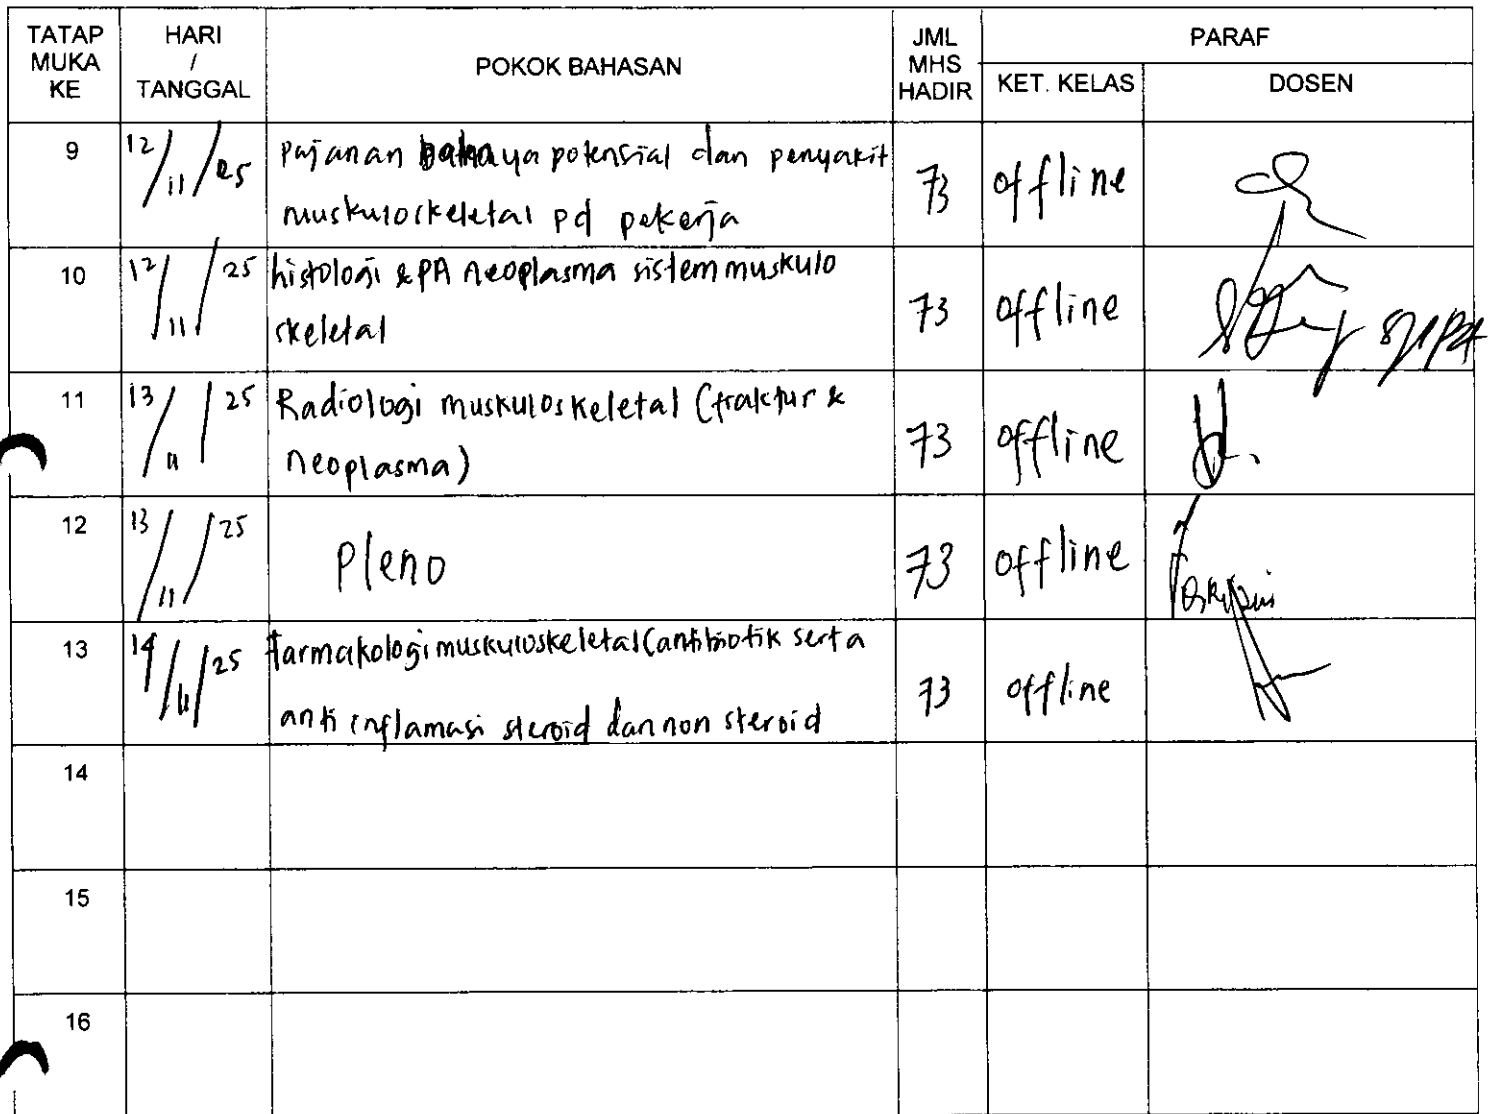 TATAP MUKA KE HARI / TANGGAL POKOK BAHASAN JML MHS HADIR PARAF
KET. KELAS DOSEN
9 12/11/25 Pajanan bahaya potensial dan penyakit 73 offline
muskuloskeletal pd pekerja
10 12/11/25 histologi & PA neoplasma sistem muskulo 73 offline
skeletal
11 13/11/25 Radiologi muskuloskeletal (fraktur & 73 offline
neoplasma)
12 13/11/25 Pleno 73 offline
13 14/11/25 farmakologi muskuloskeletal (antibiotik serta 73 offline
anti inflamasi steroid dan non steroid
14
15
16